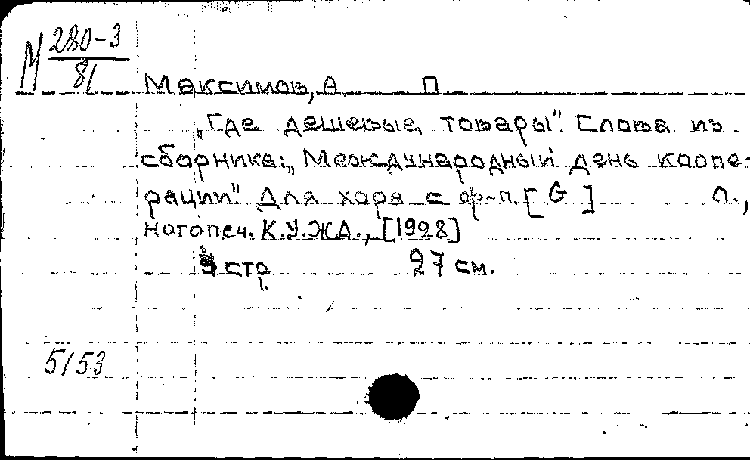 М 280-3
81
Максимов, А. П.
„Где дешевые товары". Слова из
сборника: „Международный день коопе-
рации". Для хора с ф-п. [G] Л.,
нотопеч. К.У.ЖД., [1928]
стр. 27 см.
5153